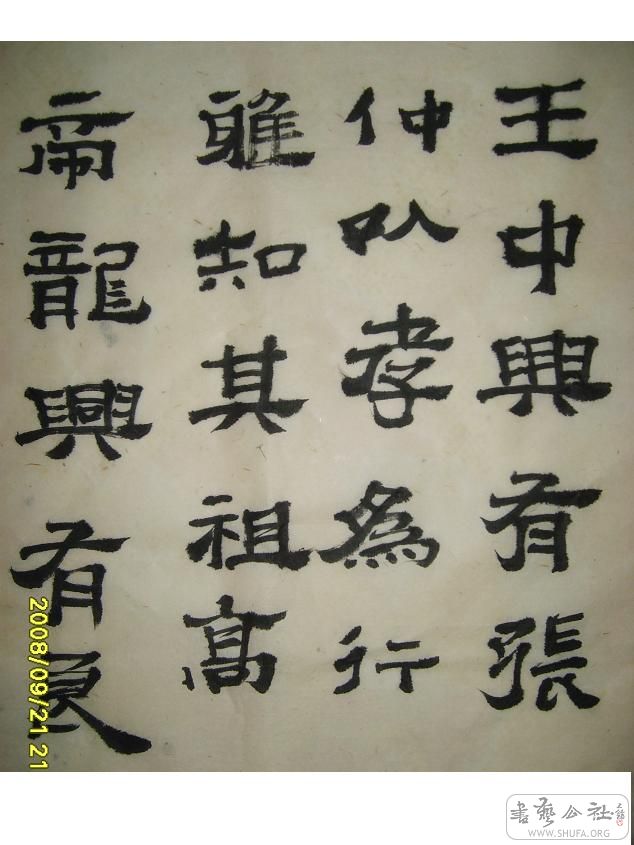 王中興有張
仲以孝為行
雅知其祖高
帝龍興有良
2008/09/21 21
書藝公社
WWW.SHUFA.ORG